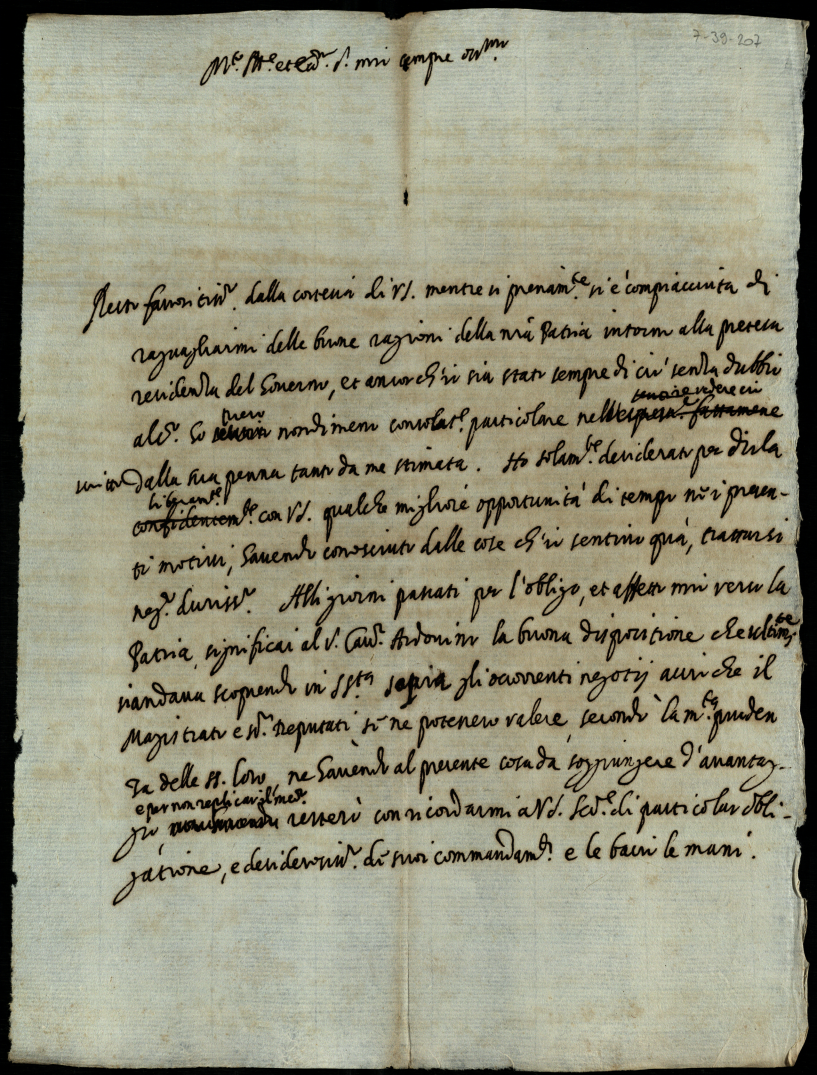 7-39-207
M.to Ill.re et Ecc.te S.r mio sempre oss.mo
Resto favoritiss.o dalla cortesia di VS. mentre si pienam.te si è compiacciuta di
ragguagliarmi delle buone ragioni della n̄ra Patria intorno alla pretesa
residenza del Governo, et ancorch'io sia stato sempre di ciò senza dubbio
sentire e vedere ciò
alc.o ho havuto nondimeno consolat.e particolare nell'espress.e
scritto dalla sua penna tanto da me stimata. Ho solam.te desiderato per dirla
liberam.te
confidentem.te con VS. qualche migliore opportunità di tempo nè i presen-
ti motivi, havendo conosciuto dalle cose ch'io sentivo quà, trattarsi
neg.o duriss.o Alli giorni passati per l'obligo, et affetto mio verso la
Patria, significai al S. Cav.r Ardoini la buona dispositione che
si andava scoprendo in S.S.tà gli occorrenti negotij acciò che il
Magistrato e Deputati se ne potessero valere, secondo la m.ta pruden
za delle SS. loro, ne havendo al presente cosa da soggiungere d'avantag-
e per non replicar il med.o
gio, resterò con ricordarmi a VS. di particolar obli-
gatione, e desiderosiss.o de suoi commandam.ti e le bacio le mani.